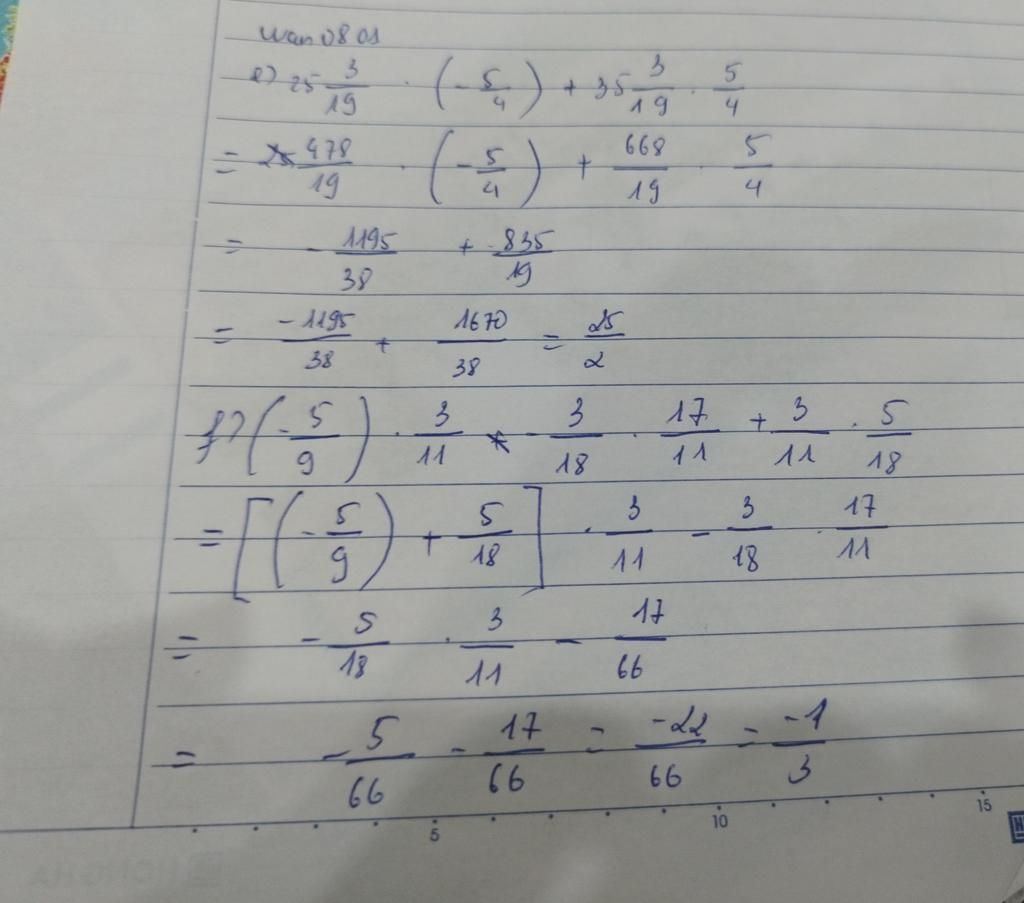 e) 25 3/19 . (-5/4) + 35 3/19 . 5/4
= 478/19 . (-5/4) + 668/19 . 5/4
= -1195/38 + 835/19
= -1195/38 + 1670/38 = 25/2
f) (-5/9) . 3/11 - 3/18 . 17/11 + 3/11 . 5/18
= [(-5/9) + 5/18] . 3/11 - 3/18 . 17/11
= -5/18 . 3/11 - 17/66
= -5/66 - 17/66 = -22/66 = -1/3
5 10 15